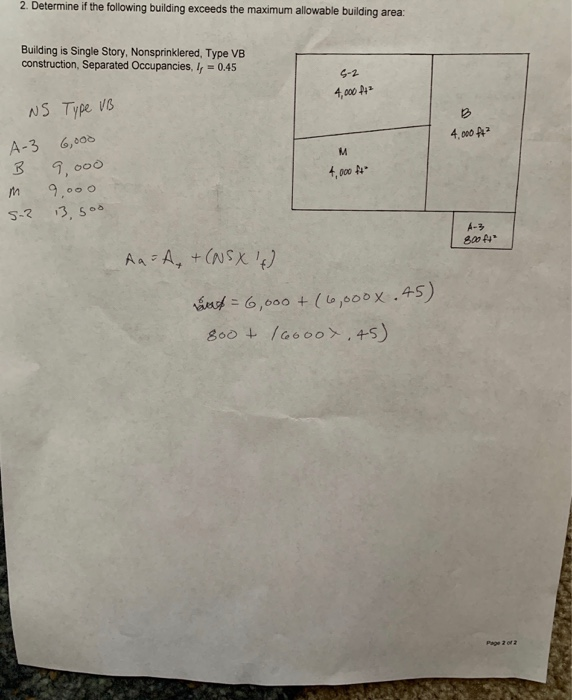 2. Determine if the following building exceeds the maximum allowable building area:
Building is Single Story, Nonsprinklered, Type VB
construction, Separated Occupancies, If = 0.45
NS Type VB
A-3 6,000
B 9,000
M 9,000
S-2 13,500
S-2
4,000 ft²
M
4,000 ft²
B
4,000 ft²
A-3
800 ft²
Aa = At + (NS X If)
= 6,000 + (6,000 X .45)
800 + (6000 X .45)
Page 2 of 2